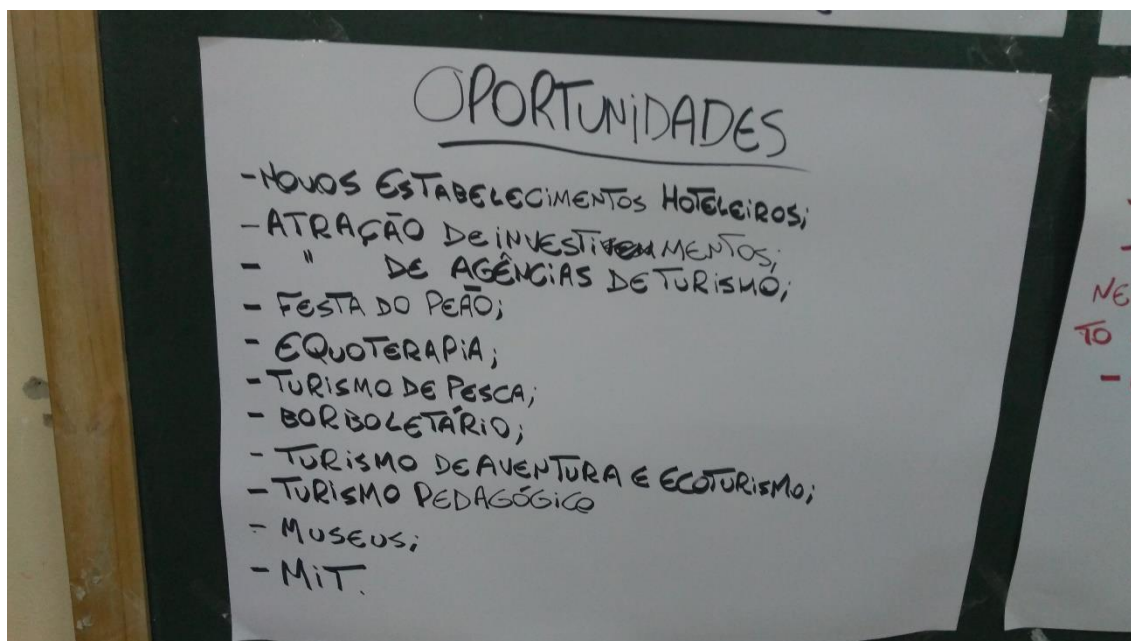 OPORTUNIDADES
- NOVOS ESTABELECIMENTOS HOTELEIROS;
- ATRAÇÃO DE INVESTIMENTOS;
- " DE AGÊNCIAS DE TURISMO;
- FESTA DO PEÃO;
- EQUOTERAPIA;
- TURISMO DE PESCA;
- BORBOLETÁRIO;
- TURISMO DE AVENTURA E ECOTURISMO;
- TURISMO PEDAGÓGICO
- MUSEUS;
- MiT.
NE
TO
-